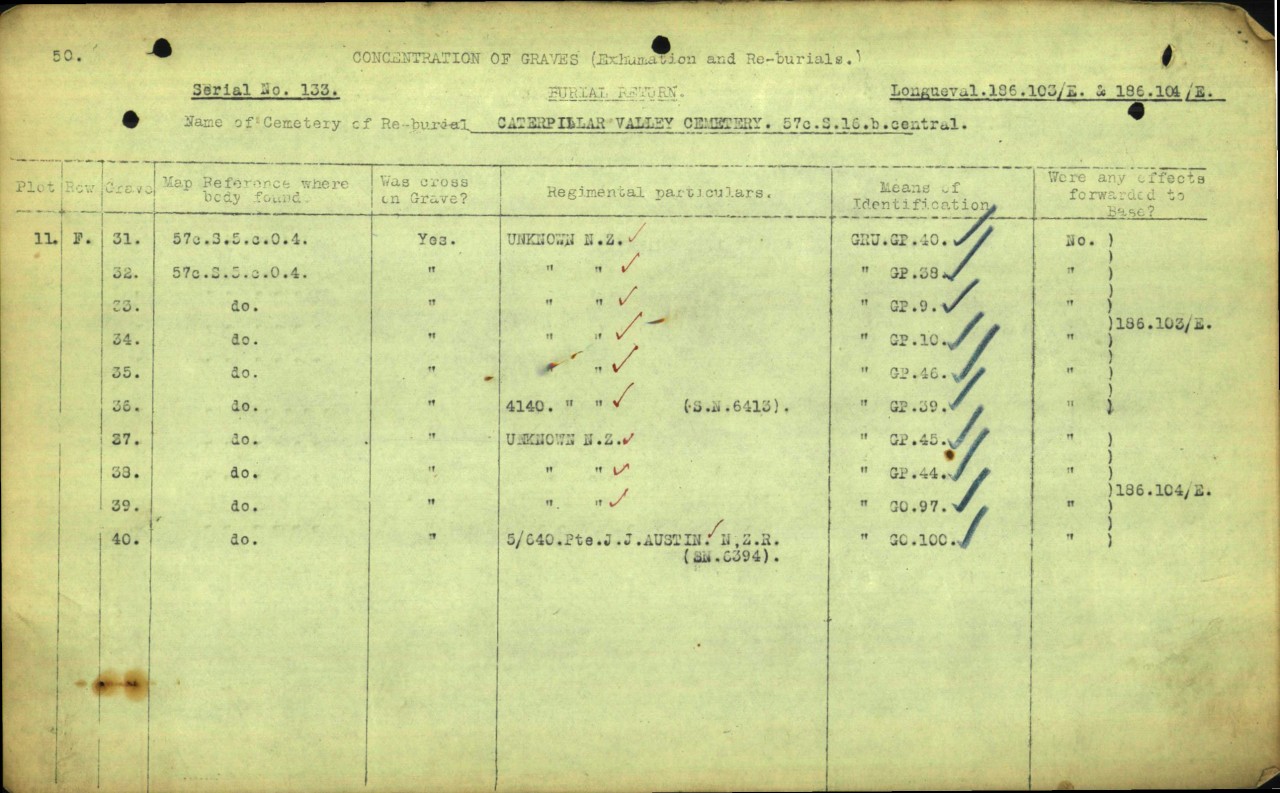 50.
CONCENTRATION OF GRAVES (Exhumation and Re-burials.)
Serial No. 133. BURIAL RETURN. Longueval.186.103/E. & 186.104/E.
Name of Cemetery of Re-burial CATERPILLAR VALLEY CEMETERY. 57c.S.16.b.central.
Plot Row Grave Map Reference where body found. Was cross on Grave? Regimental particulars. Means of Identification Were any effects forwarded to Base?
11. F. 31. 57c.S.5.c.0.4. Yes. UNKNOWN N.Z. GRU.GP.40. No. )
32. 57c.S.5.c.0.4. " " " " GP.38. " )
33. do. " " " " GP.9. " )
)186.103/E.
34. do. " " " " GP.10. " )
35. do. " " " " GP.46. " )
36. do. " 4140. " " (S.N.6413). " GP.39. " )
37. do. " UNKNOWN N.Z. " GP.45. " )
38. do. " " " " GP.44. " )
)186.104/E.
39. do. " " " " GO.97. " )
40. do. " 5/640.Pte.J.J.AUSTIN. N.Z.R. " GO.100. " )
(SN.6394).